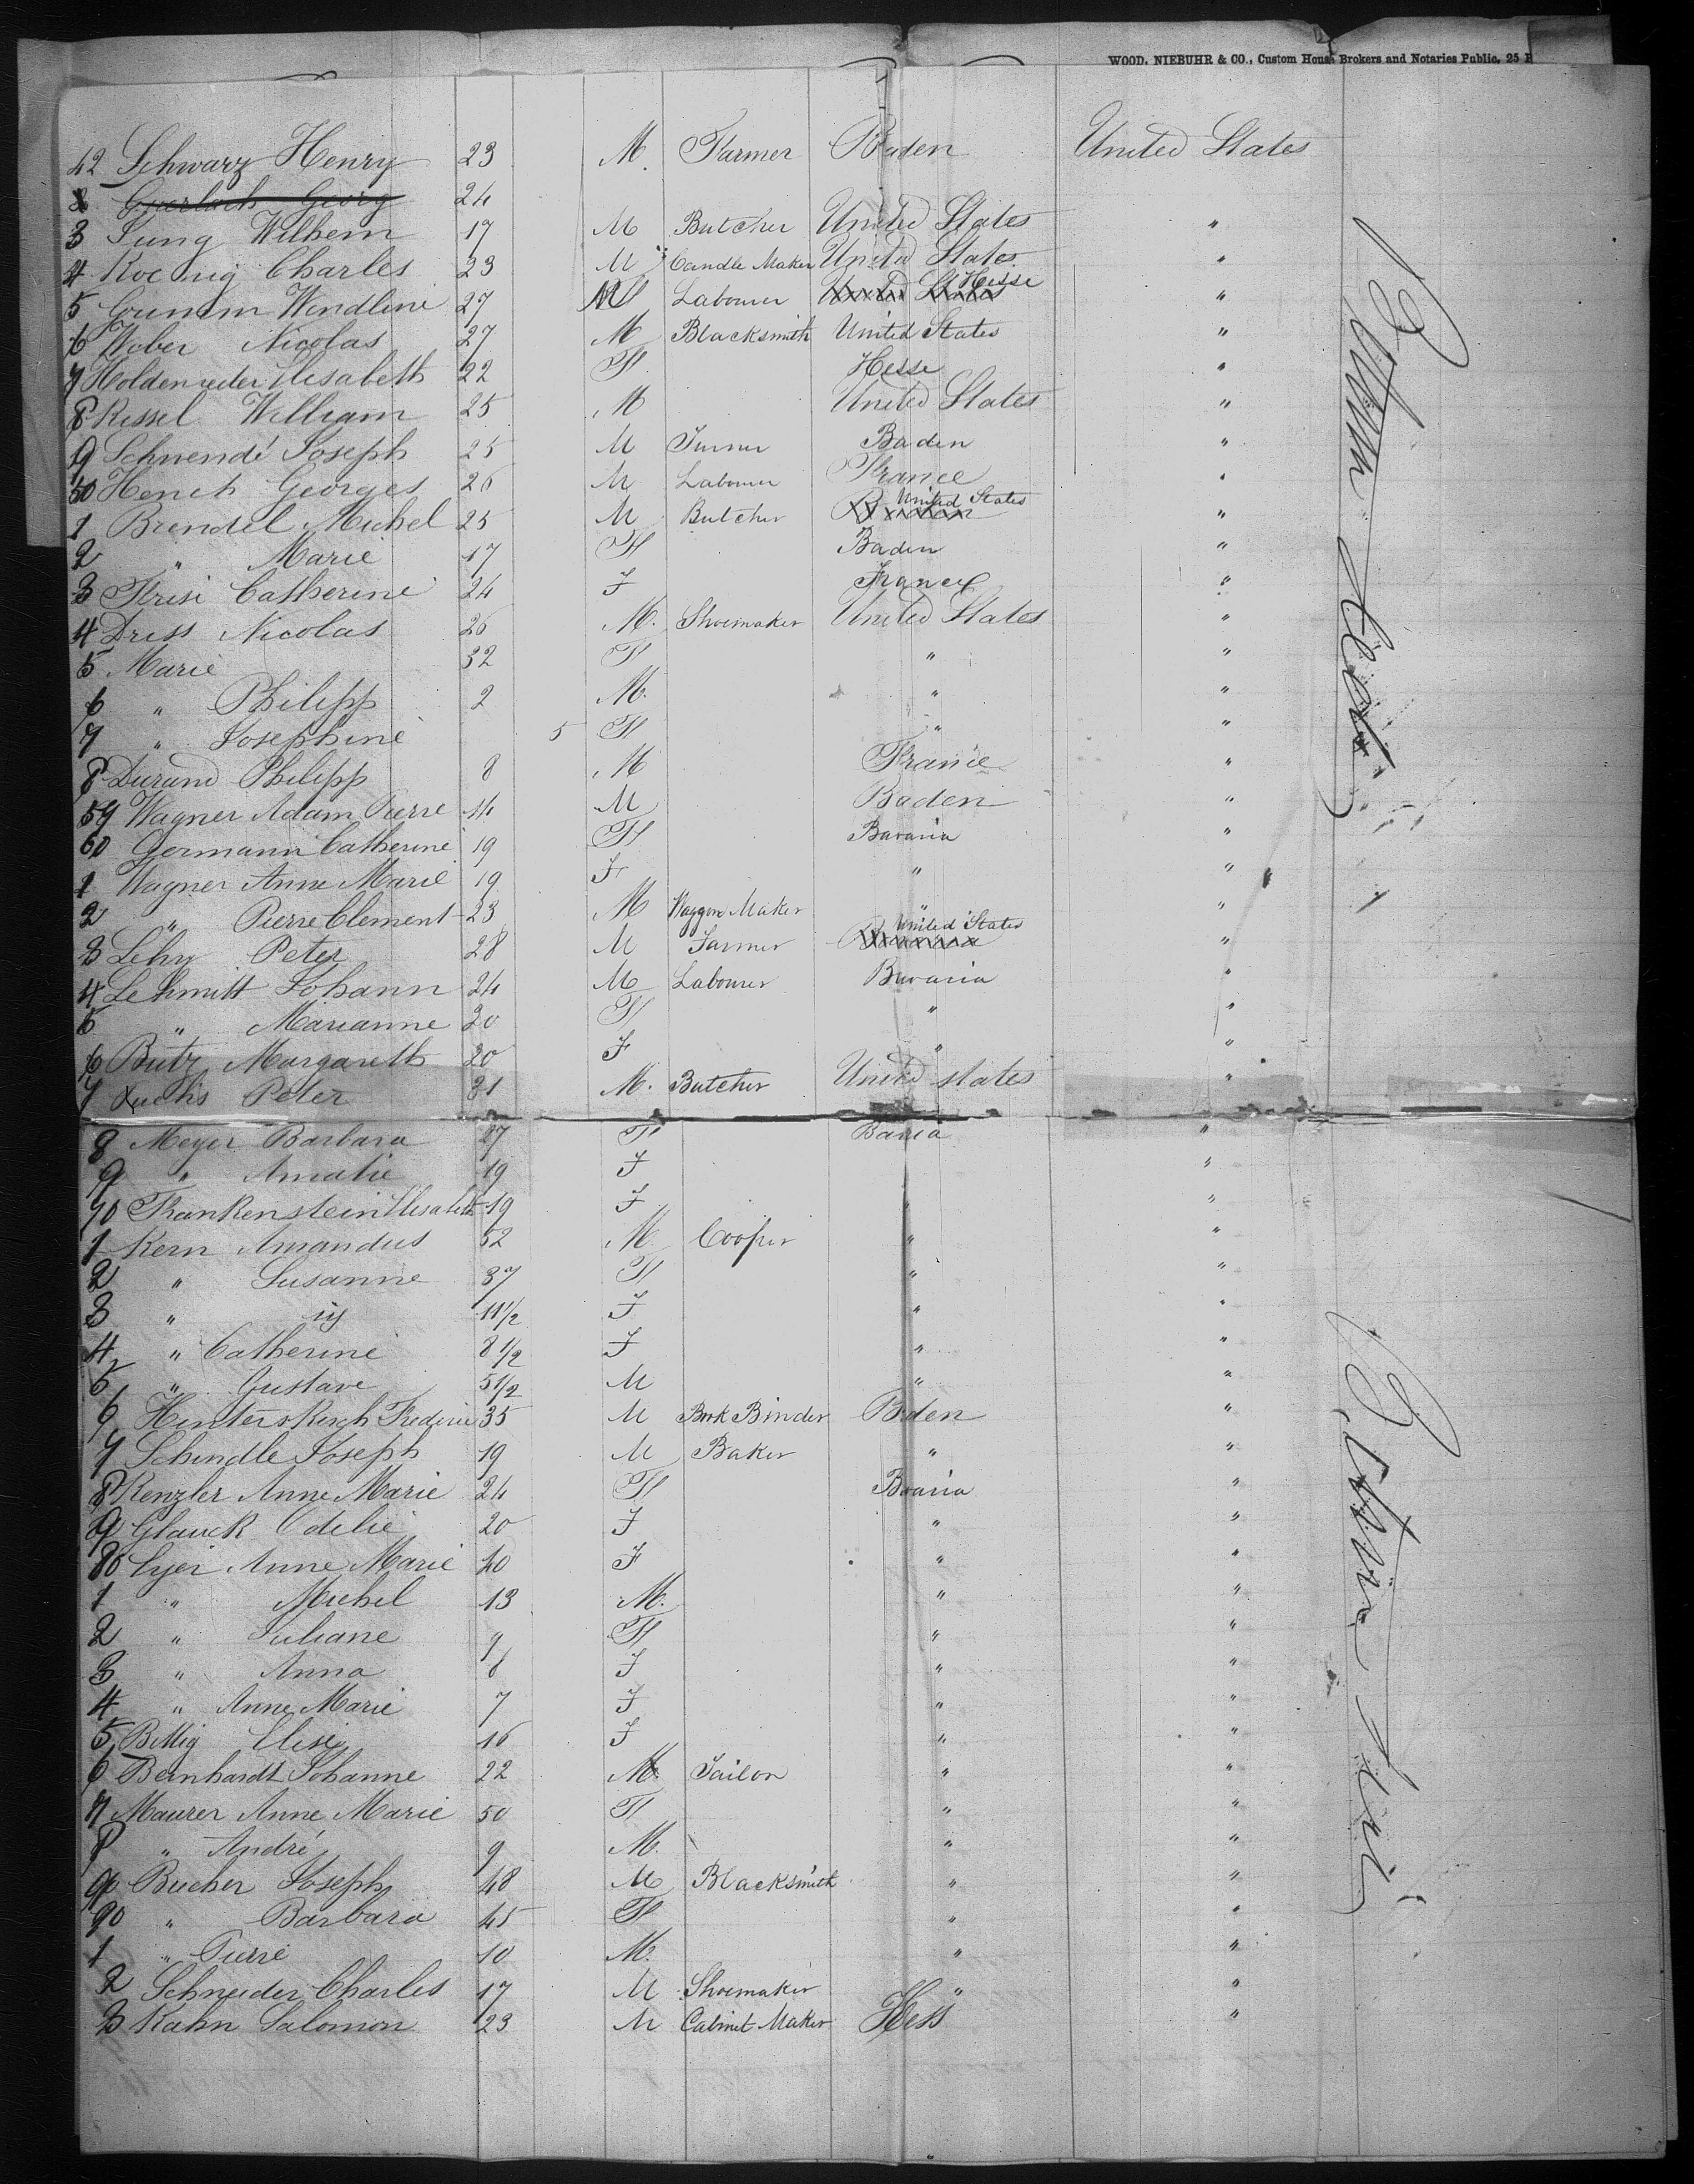 WOOD, NIEBUHR & CO., Custom House Brokers and Notaries Public, 25
42 Schwarz Henry 23 M. Farmer Baden United States
Guerlach Georg 24
3 Jung Wilhem 17 M Butcher United States "
4 Koenig Charles 23 M Candle Maker United States "
5 Grimm Wendline 27 M Labourer United States Hesse "
6 Weber Nicolas 27 M Blacksmith United States "
7 Holdenrieder Elisabeth 22 F Hesse "
8 Kissel William 25 M United States "
9 Schwendé Joseph 25 M Turner Baden "
50 Hench Georges 26 M Labourer France "
1 Brendel Michel 25 M Butcher United States "
2 " Marie 17 F Baden "
3 Frisi Catherine 24 F France "
4 Driss Nicolas 26 M. Shoemaker United States "
5 Marie 32 F " "
6 " Philipp 2 M. " "
7 " Josephine 5 F " "
8 Durand Philipp 8 M France "
59 Wagner Adam Pierre 14 M Baden "
60 Germann Catherine 19 F Bavaria "
1 Wagner Anne Marie 19 F " "
2 " Pierre Clement 23 M Waggon Maker " "
3 Lehy Peter 28 M Farmer Bavaria United States "
4 Schmitt Johann 24 M Labourer Bavaria "
5 " Marianne 20 F " "
6 Butz Margareth 20 F " "
7 Fuchs Peter 31 M. Butcher United states "
8 Meyer Barbara 27 F "
9 " Amalie 19 F "
70 Frankenstein Elisabeth 19 F " "
1 Kern Amandus 52 M. Cooper " "
2 " Susanne 37 F " "
3 " 11 1/2 F " "
4 " Catherine 8 1/2 F " "
5 " Gustave 5 1/2 M " "
6 Hinterskirch Frederic 35 M Book Binder Baden "
7 Schindle Joseph 19 M Baker " "
8 Kenzler Anne Marie 24 F Bavaria "
9 Glauck Odelie 20 F " "
80 Eyer Anne Marie 40 F " "
1 " Michel 13 M. " "
2 " Juliane 9 F " "
3 " Anna 8 F " "
4 " Anne Marie 7 F " "
5 Bittig Elise 16 F " "
6 Bernhardt Johanne 22 M. Tailor " "
7 Maurer Anne Marie 50 F " "
8 " André 9 M. " "
9 Bucher Joseph 48 M Blacksmith " "
90 " Barbara 45 F " "
1 " Pierre 10 M. " "
2 Schneider Charles 17 M Shoemaker " "
3 Kahn Salomon 23 M Cabinet Maker Hess "